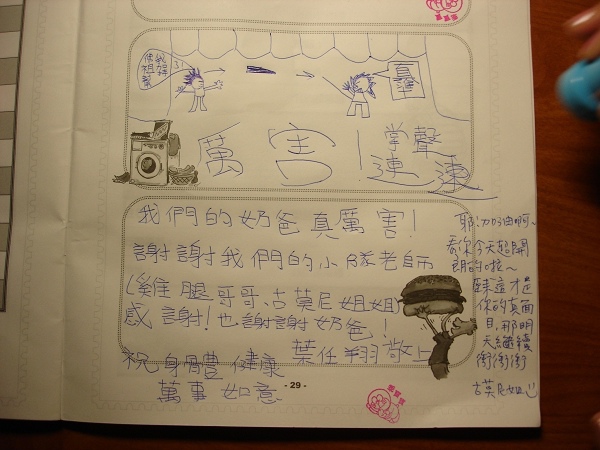 萬害！掌聲
連連
我們的奶爸真厲害！
謝謝我們的小隊老師
(雞腿哥哥、古莫尼姐姐)
感謝！也謝謝奶爸！
葉任翔敬上
祝身體健康
萬事如意
- 29 -
耶!加油啊~
看你今天超開
朗的啦~
這才是
你的真面
目,那明
天繼續
衝衝衝
古莫尼姐